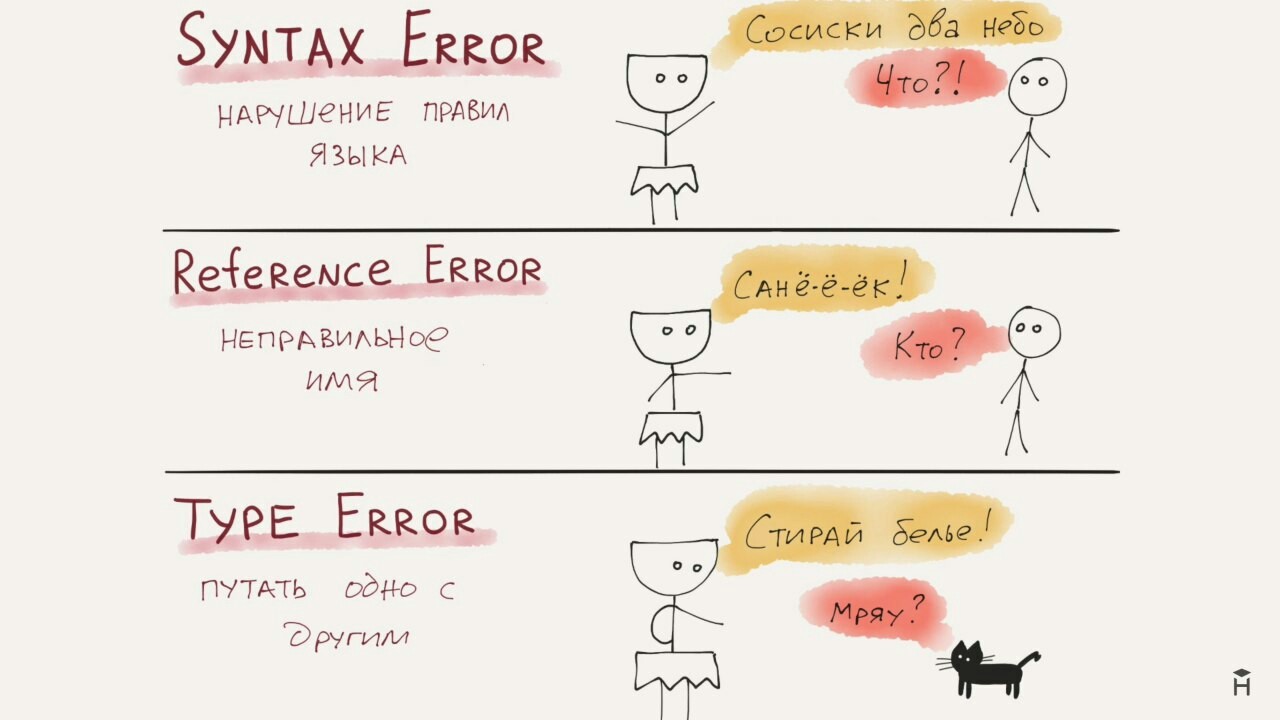 SYNTAX ERROR
НАРУШЕНИЕ ПРАВИЛ
ЯЗЫКА
Сосиски два небо
Что?!
Reference Error
НЕПРАВИЛЬНОЕ
ИМЯ
Санё-ё-ёк!
Кто?
TYPE ERROR
ПУТАТЬ ОДНО С
ДРУГИМ
Стирай белье!
Мряу?
H